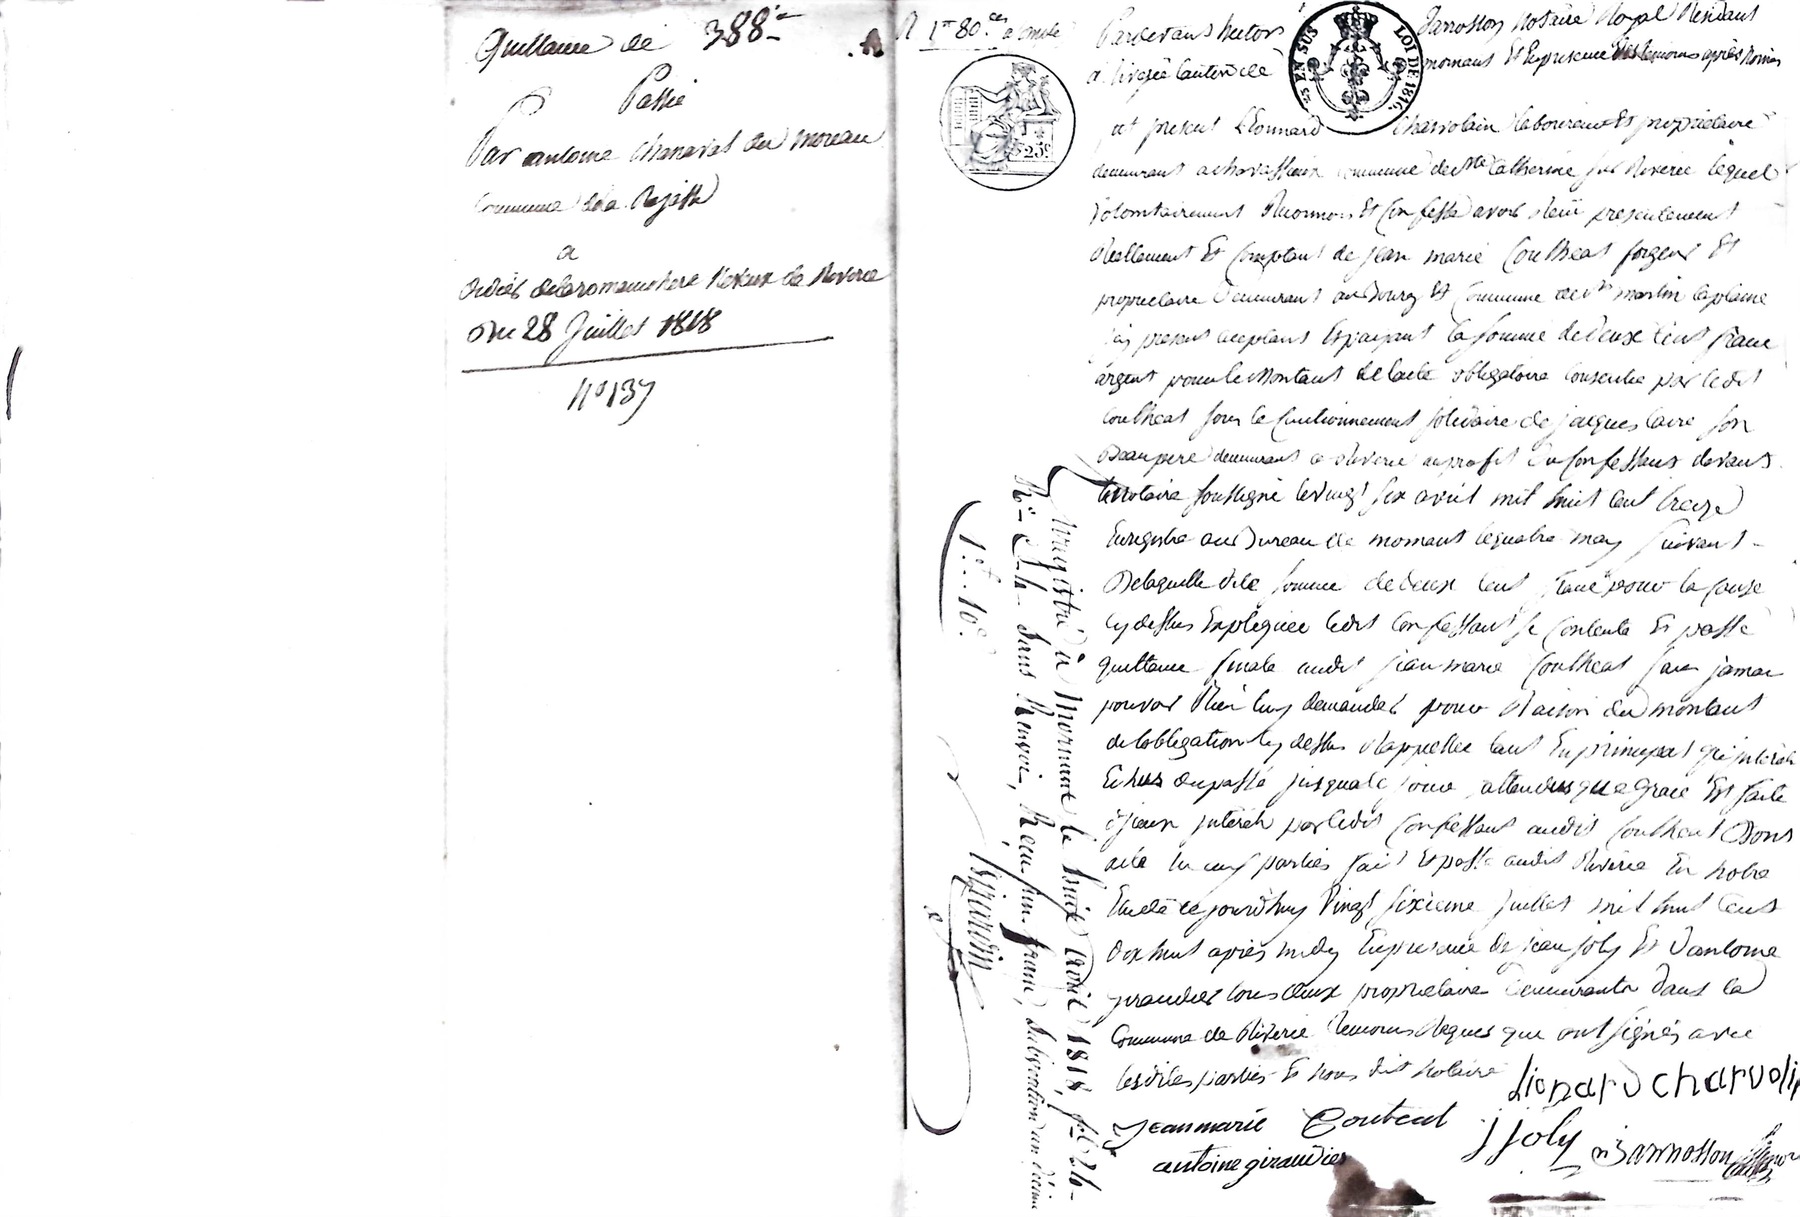 Quittance de 388 f
Passée
Par antoine chanavat du moreau
Commune de la Rajasse
a
didier delaromanchere Neveux de Riverie
Du 28 Juillet 1818
N° 137
R 1 fr 80 ces
Pardevant hector Jarrosson Notaire Royal Résidant
a riverie canton de mornant Et En presence des temoins après nommés
fut present Léonnard Charvolain laboureur Et propriétaire
demeurant a chavassieux commune de Ste Catherine sur Riverie lequel
volontairement Reconnois Et Confesse avoir Reçu presentement
Reellement Et Comptant de jean marie Coutheat forgeur Et
proprietaire demeurant au Bourg Et Commune de St martin laplaine
ici present acceptant Et payant la somme de deux cent franc
argent pour le Montant de lacte obligatoire consentie par ledit
coutheat sous le Cautionnement solidaire de jacques laire son
Beaupere demeurant a Riverie au profit du Confessant devant
le Notaire soussigné le vingt six avril mil huit cent treize
Enregistré au Bureau de mornant le quatre may suivant
De laquelle dite somme de deux cent franc pour la cause
cy dessus Expliquée ledit Confessant se Contente Et passe
quittance finale audit jean marie Coutheat sans jamais
pouvoir Rien luy demander pour Raison du montant
de l'obligation cy dessus Rappellée tant En principal qu'intérêts
Echus du passé jusqua ce jour attendus que grace Est faite
d'iceux intérêts par ledit Confessant audit Coutheat Dont
acte lu aux parties fait Et passé audit Riverie En notre
Etude ce jourdhuy Vingt sixieme juillet mil huit cent
dix huit après midy En presence de jean joly Et d'antoine
giraudier tous deux propriétaire demeurants dans la
Commune de Riverie temoins Requis que ont signés avec
lesdites parties Et nous dit notaire
Lionard charvolin
Jean marie Couteat
j joly
antoine giraudier
Jarrosson
Enregistré à Mornant le huit août 1818, f°
Sans Renvoi, Reçu un franc, subvention un décime
1 f 10 c
25 EN SUS
LOI DE 1816.